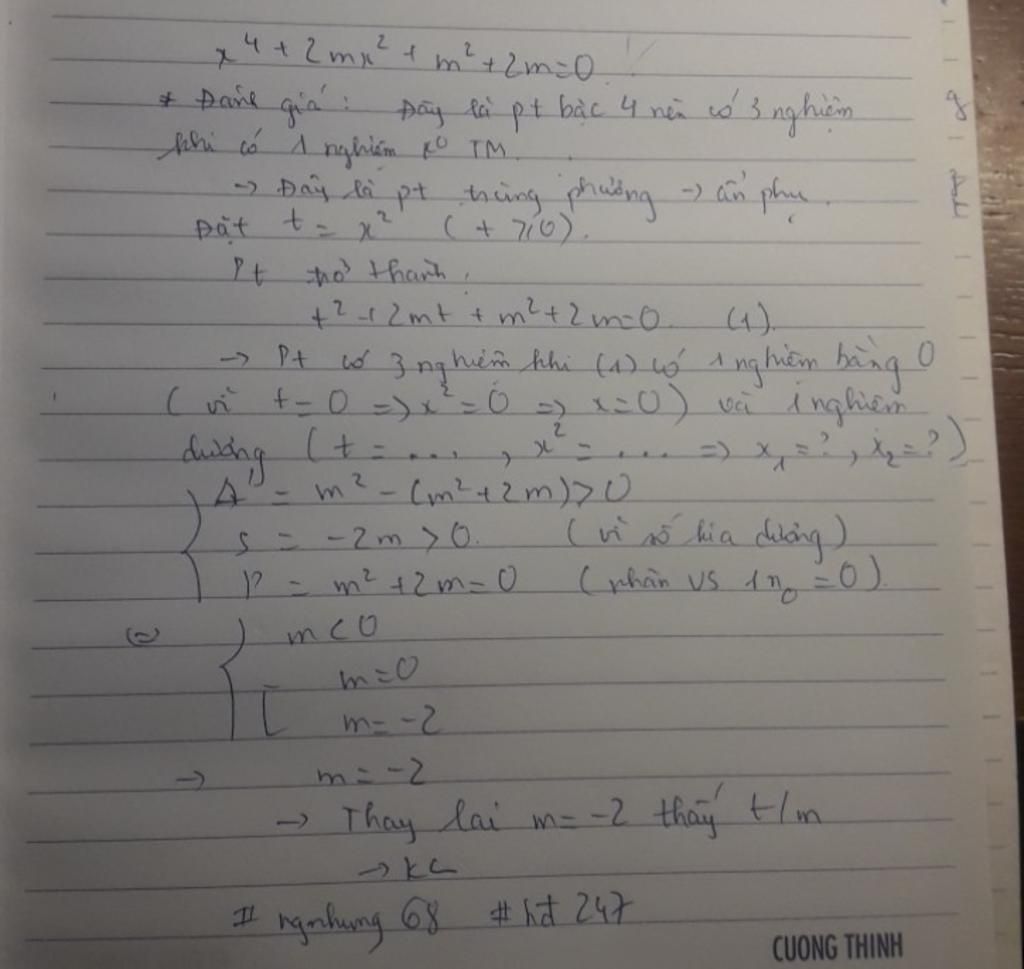 x⁴ + 2mx² + m² + 2m = 0
* Đánh giá : Đây là pt bậc 4 nên có 3 nghiệm
khi có 1 nghiệm k⁰ TM.
→ Đây là pt trùng phương → ẩn phụ.
Đặt t = x² (t ≥ 0).
Pt trở thành.
t² + 2mt + m² + 2m = 0. (1).
→ Pt có 3 nghiệm khi (1) có 1 nghiệm bằng 0
( vì t = 0 => x² = 0 => x = 0 ) và 1 nghiệm
dương ( t = ... , x² = ... => x₁ = ? , x₂ = ? )
Δ' = m² - (m² + 2m) > 0
S = -2m > 0. ( vì số kia dương )
P = m² + 2m = 0 ( nhân vs 1 n₀ = 0 ).
⇔ m < 0
m = 0
m = -2
→ m = -2
→ Thay lại m = -2 thấy t/m
→ KL
# ngnhung 68 # hđ 247
CUONG THINH